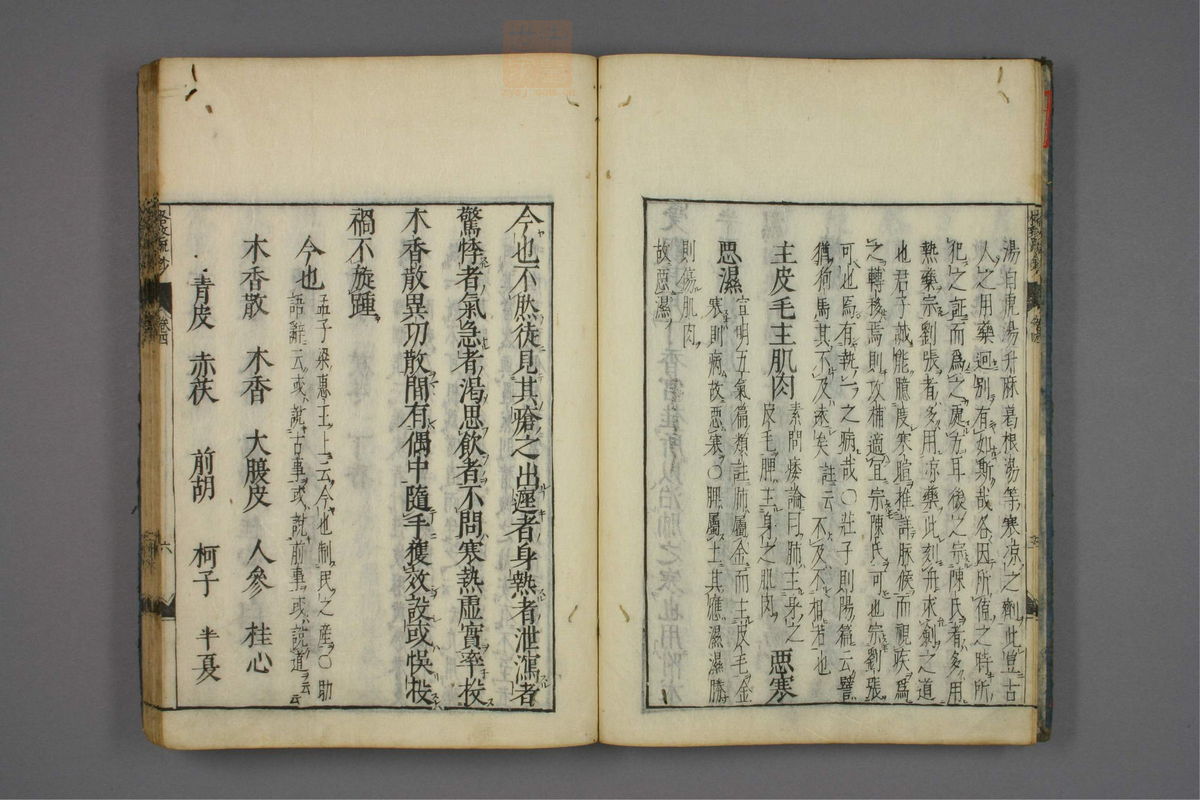 湯白虎湯升麻葛根湯等寒凉之劑此豈古
人之用藥迥別有如斯哉各因所值之時所
犯之証而爲之處方耳後之宗陳氏者多用
熱藥宗劉張者多用凉藥此刻舟求劍之道
也君子誠能臆度寒暄推詳脉候而視疾爲
之轉移焉則攻補適宜宗陳氏可也宗劉張
可也焉有執一之病哉○莊子則陽篇云譬
猶狗馬其不及逮矣 註云不及不相若也
主皮毛主肌肉 素問痿論曰肺主身之
皮毛脾主身之肌肉 惡寒
宣明五氣篇類註肺屬金而主皮毛金
惡濕 寒則病故惡寒○脾屬土其應濕濕勝
則傷肌肉
故惡濕
今也不然徒見其瘡之出遲者身熱者泄瀉者
驚悸者氣急者渴思飲者不問寒熱虛實率投
木香散異功散間有偶中隨手獲效設或悞投
禍不旋踵
今也 孟子梁惠王上云今也制民之産○助
語辭云或說古事或說前事或說道云云
木香散 木香 大腹皮 人參 桂心
青皮 赤茯 前胡 柯子 半夏
卷四
六